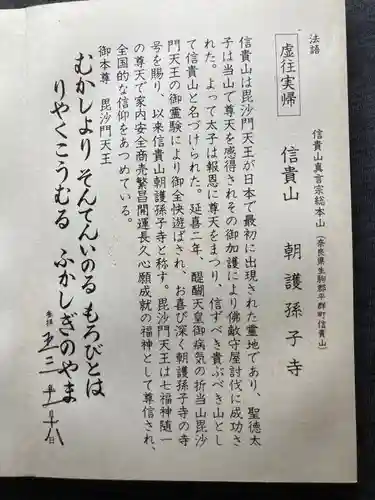 法語
虚往実帰
信貴山真言宗総本山（奈良県生駒郡平群町信貴山）
信貴山　朝護孫子寺
信貴山は毘沙門天王が日本で最初に出現された霊地であり、聖徳太
子は当山で尊天を感得されその御加護により佛敵守屋討伐に成功さ
れた。よって太子は報恩に尊天をまつり、信ずべき貴ぶべき山とし
て信貴山と名づけられた。延喜二年、醍醐天皇御病気の折当山毘沙
門天王の御霊験により御全快遊ばされ、お喜び深く朝護孫子寺の寺
号を賜り、以来信貴山朝護孫子寺と称す。毘沙門天王は七福神随一
の尊天で家内安全商売繁昌開運長久心願成就の福神として尊信され、
全国的な信仰をあつめている。
御本尊　毘沙門天王
むかしより そんてんいのる もろびとは
りやくこうむる ふかしぎのやま
参拝 三 年 十一月 十八日